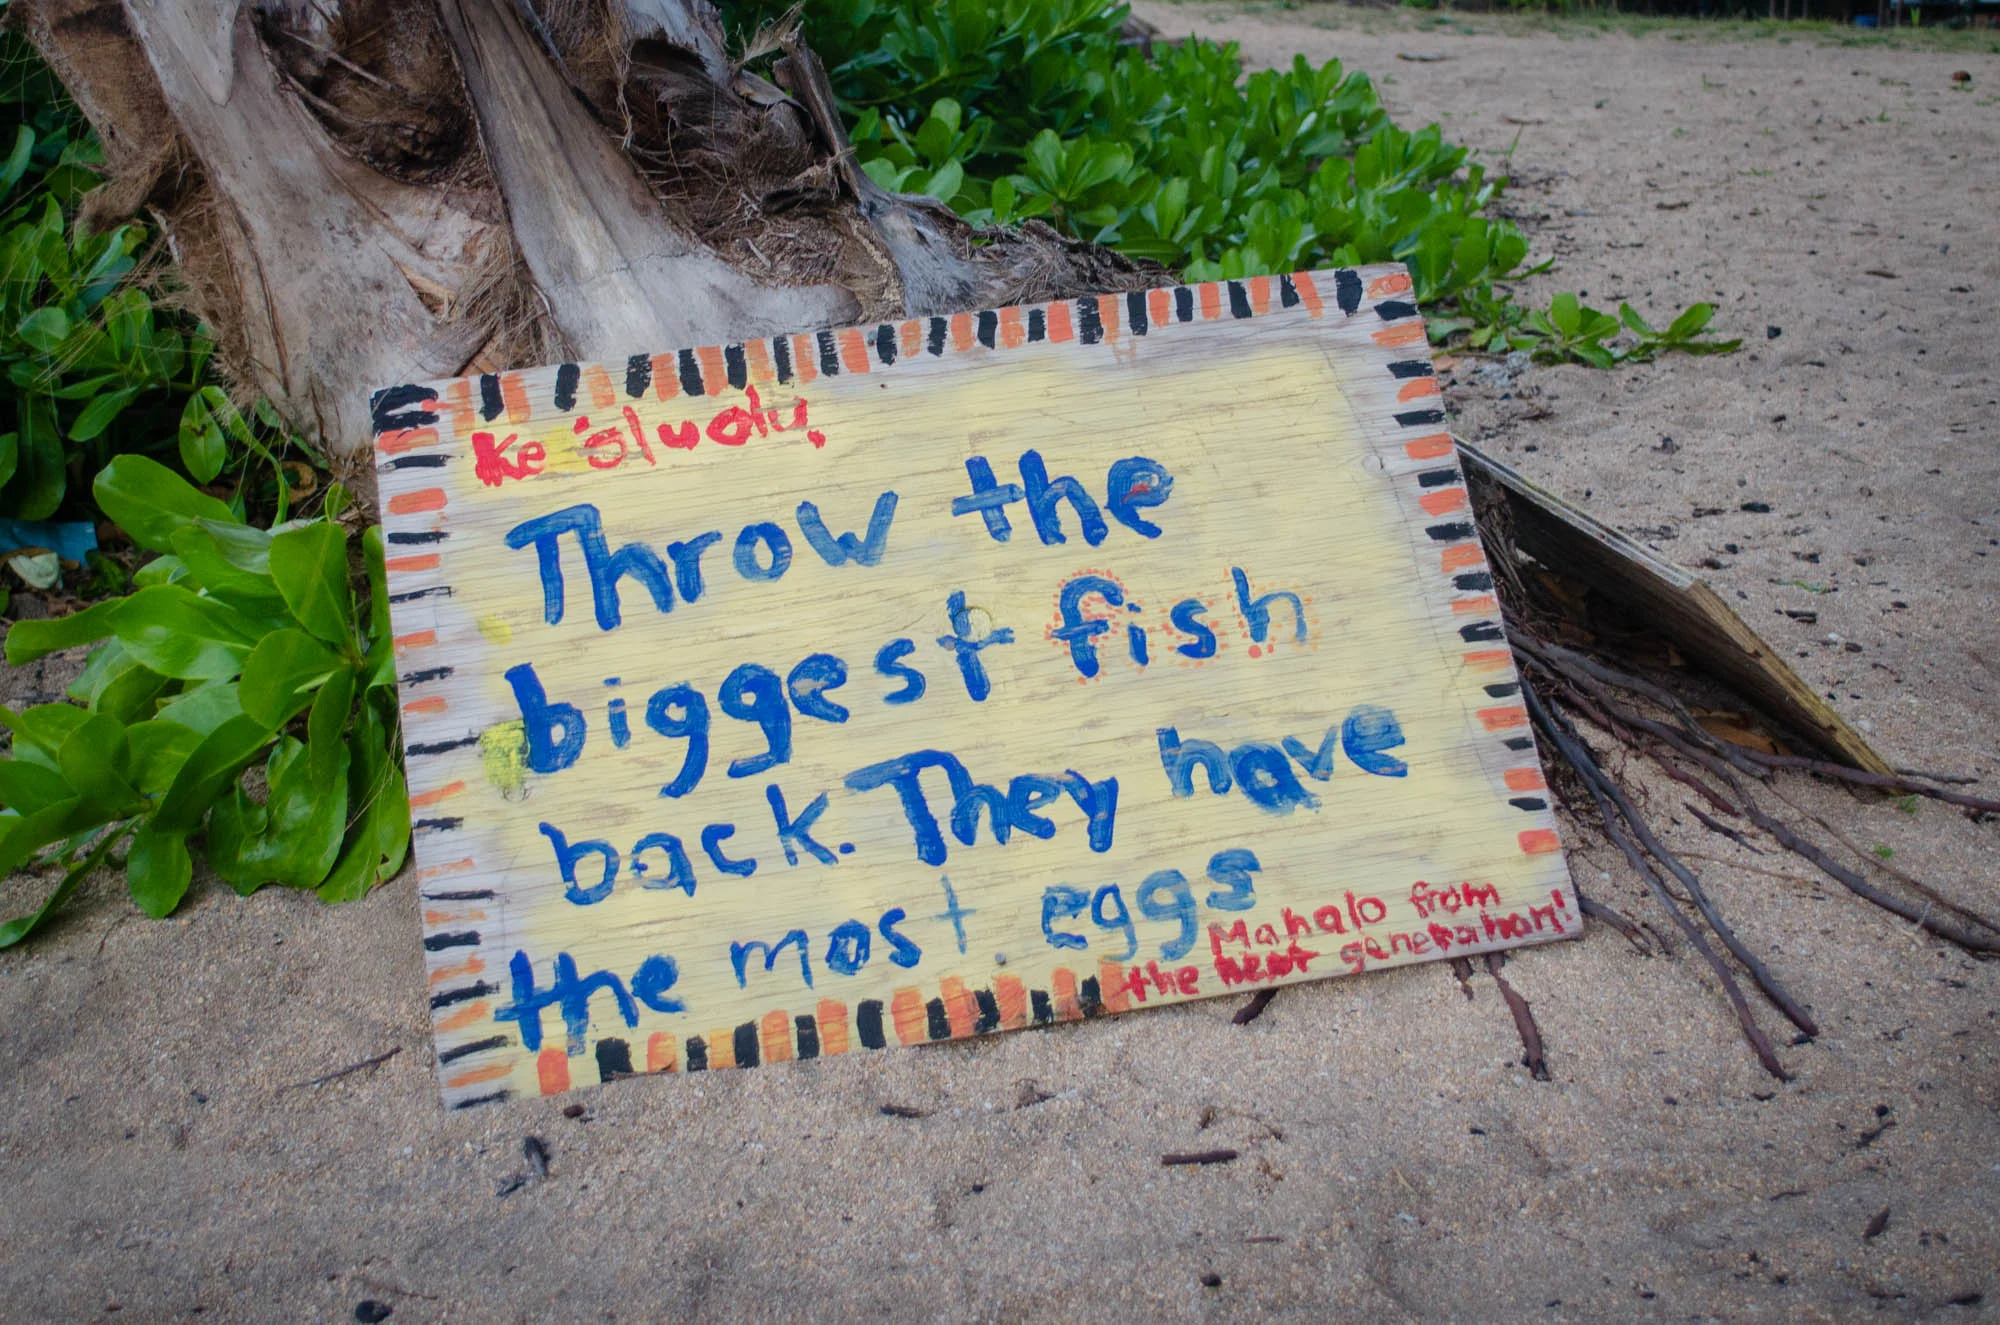 Throw the
biggest fish
back. They have
the most eggs
Mahalo from
the next generation!